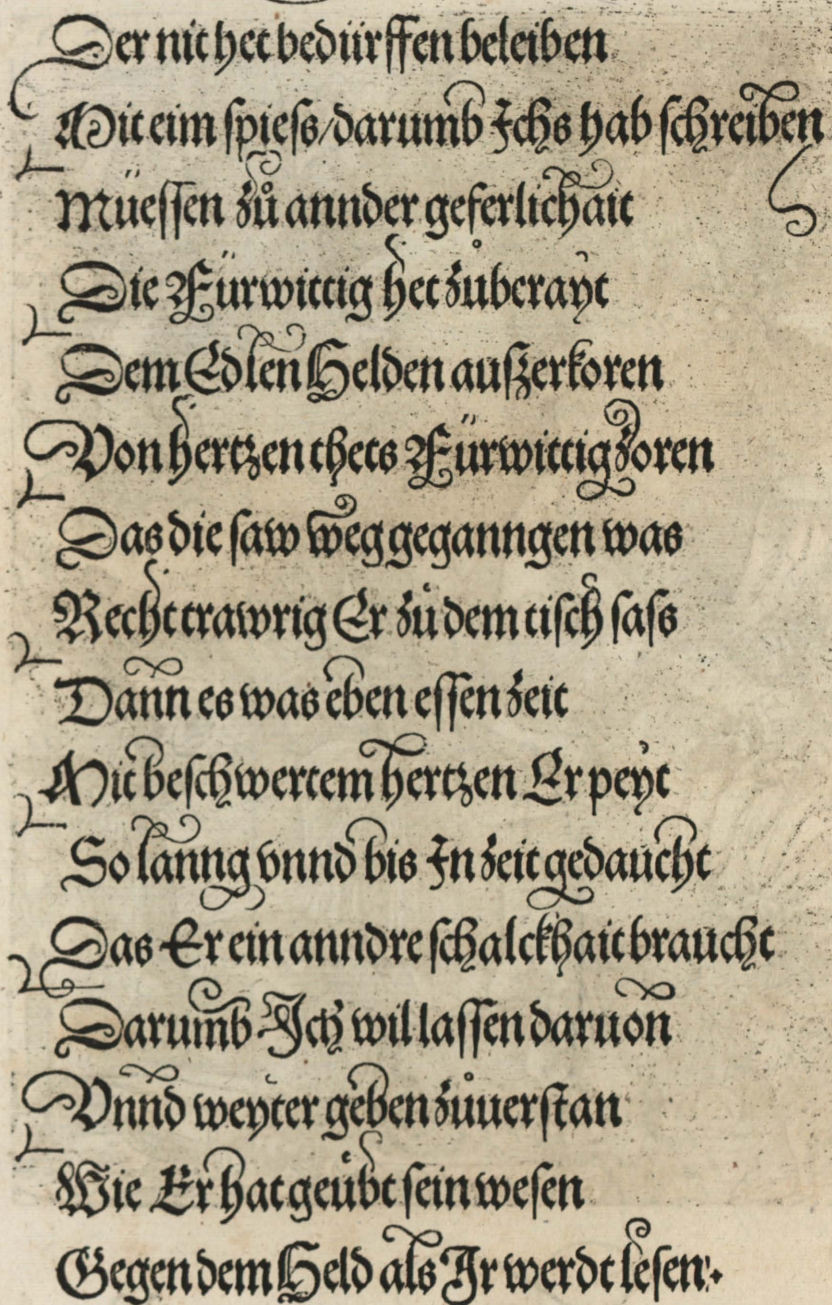 Der nit het bedürffen beleiben
Mit eim spiess/darumb Ichs hab schreiben
Müessen zů annder geferlichait
Die Fürwittig het zůberayt
Dem Edlen Helden auszerkoren
Von hertzen thets Fürwittig zoren
Das die saw weg geganngen was
Recht trawrig Er zů dem tisch sass
Dann es was eben essen zeit
Mit beschwertem hertzen Er peyt
So lanng vnnd bis In zeit gedaucht
Das Er ein anndre schalckhait braucht
Darumb Ich wil lassen daruon
Vnnd weyter geben zůuerstan
Wie Er hat geübt sein wesen
Gegen dem Held als Ir werdt lesen: